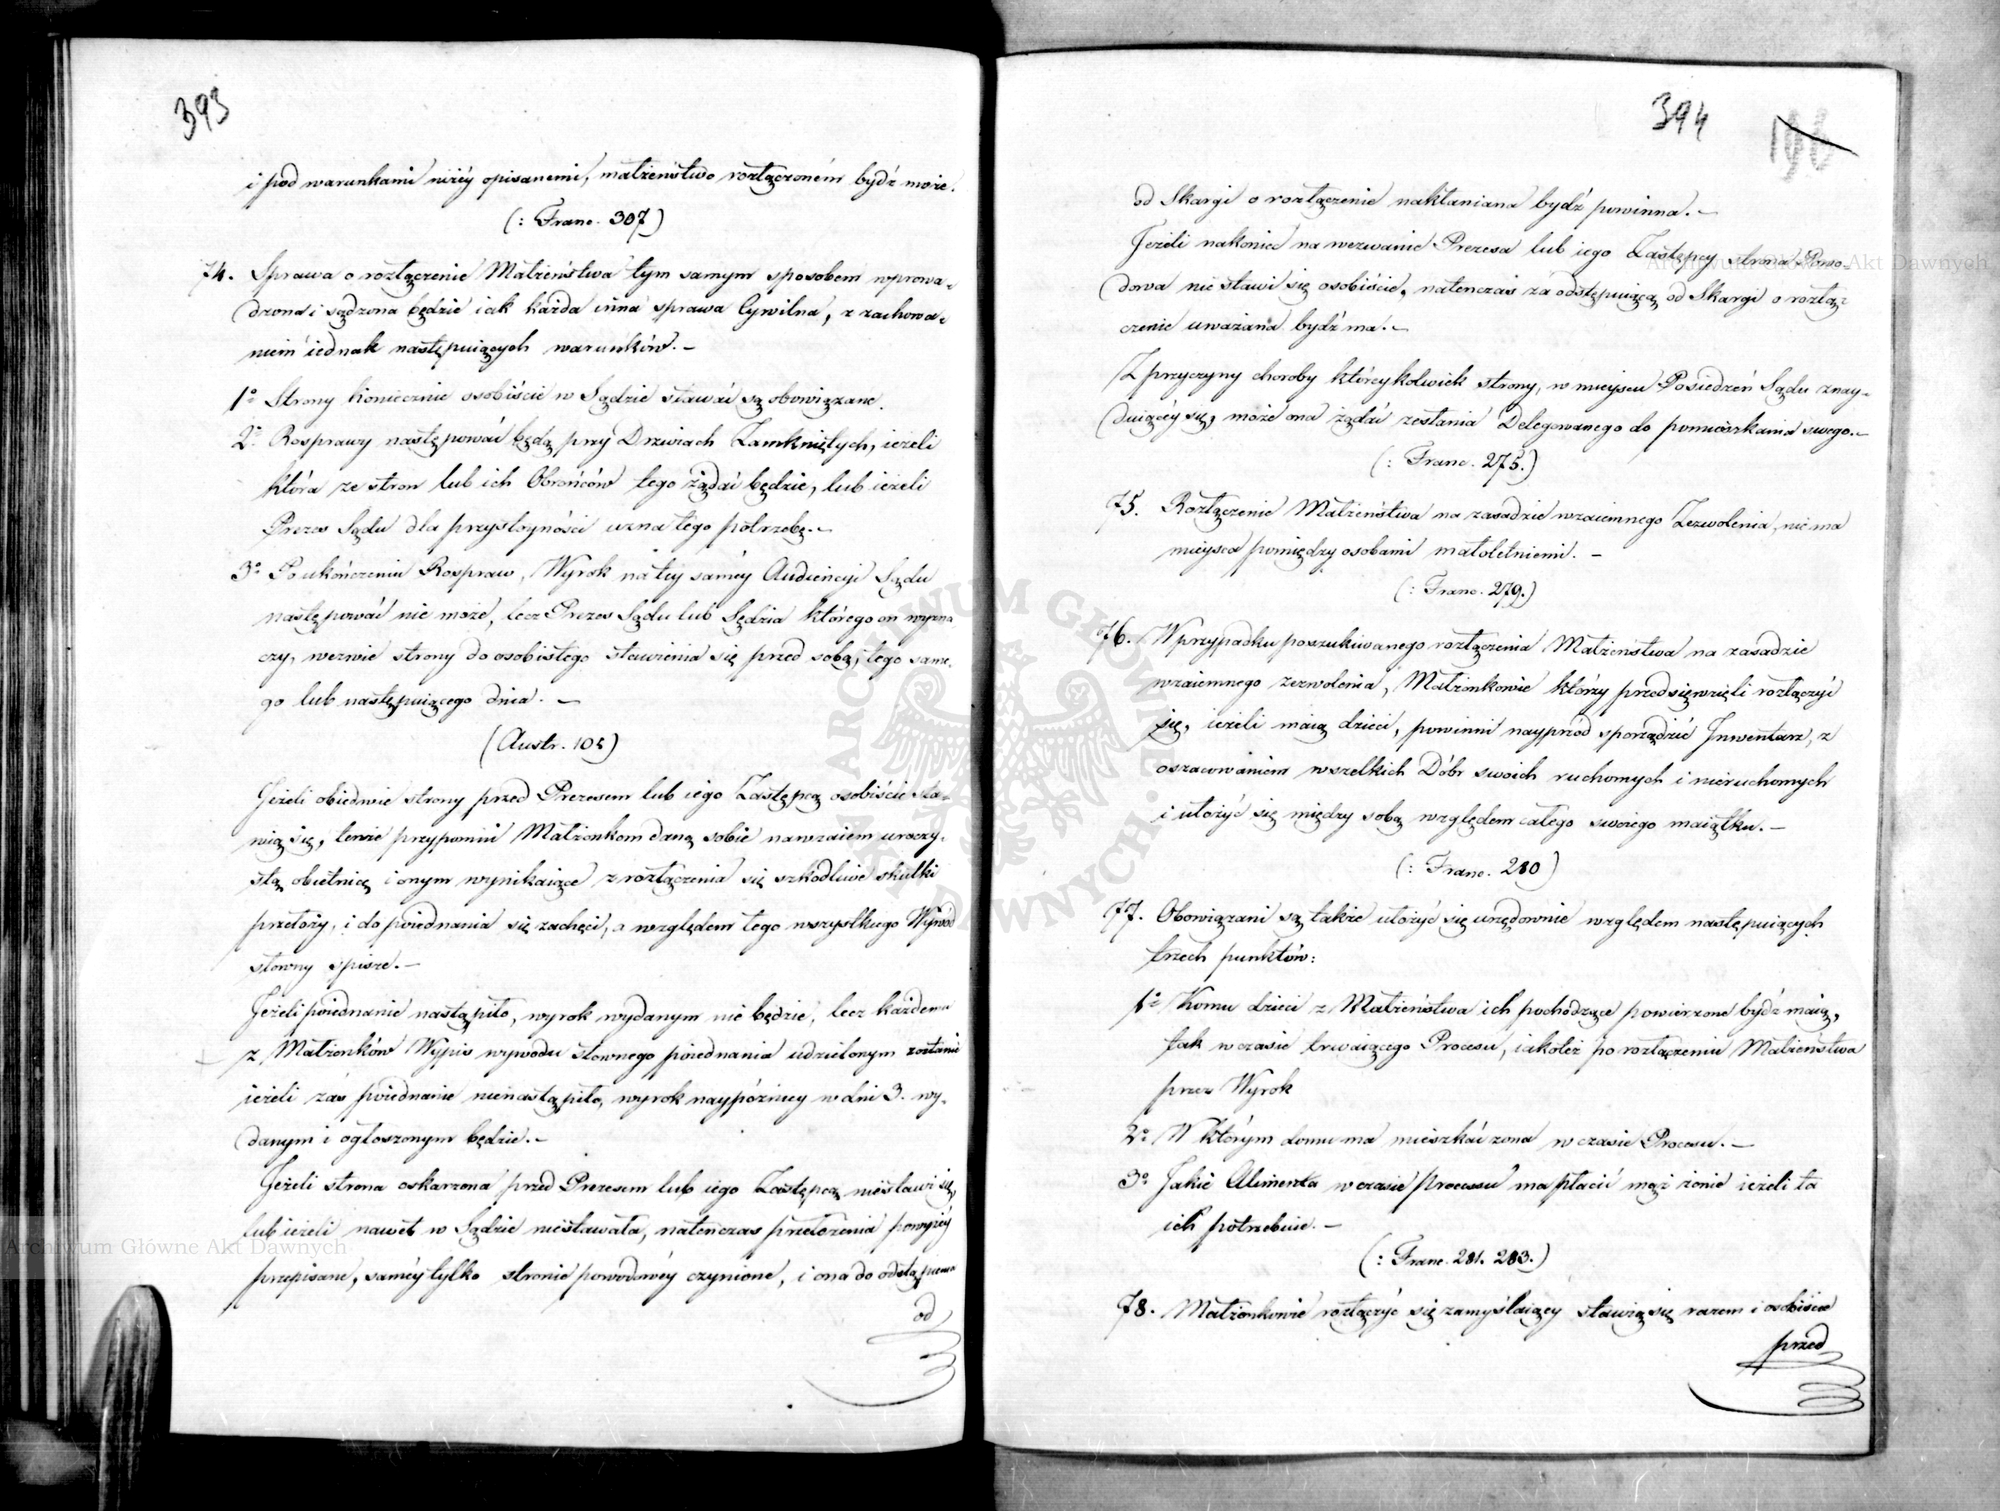 393
i pod warunkami niżéy opisanemi, małżeństwo rozłączoném bydź może.
(: Franc. 307)
74. Sprawa o rozłączenie Małżeństwa tym samym sposobem wprowa-
dzona i sądzona będzie iak każda inna sprawa Cywilna, z zachowa-
niem iednak następuiących warunków. –
1º Strony koniecznie osobiście w Sądzie stawać są obowiązane.
2º Rosprawy następować będą przy Drzwiach Zamkniętych, ieżeli
która ze stron lub ich Obrońców tego żądać będzie, lub ieżeli
Prezes Sądu dla przystoyności uzna tego potrzebę. –
3º Po ukończeniu Rospraw, Wyrok na tey saméy Audiencyi Sądu
następować nie może, lecz Prezes Sądu lub Sędzia którego on wyzna
czy, wezwie strony do osobistego stawienia się przed sobą, tego same-
go lub następuiącego dnia. –
(Austr. 105)
Jeżeli obiedwie strony przed Prezesem lub iego Zastępcą osobiście sta-
wią się, tenże przypomni Małżonkom daną sobie nawzaiem uroczy-
stą obietnicę i onym wynikaiące z rozłączenia się szkodliwe skutki
przełoży, i do poiednania się zachęci, a względem tego wszystkiego Wywód
słowny spisze. –
Jeżeli poiednanie nastąpiło, wyrok wydanym nie będzie, lecz każdemu
z Małżonków Wypis wywodu słownego poiednania udzielonym zostanie
ieżeli zaś poiednanie nienastąpiło, wyrok naypóźniey w dni 3. wy-
danym i ogłoszonym będzie. –
Jeżeli strona oskarżona przed Prezesem lub iego Zastępcą niestawi się,
lub ieżeli nawet w Sądzie niestawała, natenczas przełożenia powyżéy
przepisane, saméy tylko stronie powodowéy czynione, i ona do odstąpienia
od
394
196
od Skargi o rozłączenie nakłaniana bydź powinna. –
Jeżeli nakoniec na wezwanie Prezesa lub iego Zastępcy strona Powo-
dowa nie stawi się osobiście, natenczas za odstępuiącą od Skargi o rozłą-
czenie uważana bydź ma. –
Z przyczyny choroby któreykolwiek strony, w mieyscu Posiedzeń Sądu znay-
duiącéy się, może ona żądać zesłania Delegowanego do pomieszkania swego. –
(: Franc. 275.)
75. Rozłączenie Małżeństwa na zasadzie wzaiemnego Zezwolenia, nie ma
mieysca pomiędzy osobami małoletniemi. –
(: Franc. 279.)
76. W przypadku poszukiwanego rozłączenia Małżeństwa na zasadzie
wzaiemnego zezwolenia, Małżonkowie którzy przedsięwzięli rozłączyć
się, ieżeli maią dzieci, powinni nayprzód sporządzić Inwentarz, z
oszacowaniem wszelkich Dóbr swoich ruchomych i nieruchomych
i ułożyć się między sobą względem całego swoiego maiątku. –
(: Franc. 280)
77. Obowiązani są także ułożyć się urzędownie względem następuiących
trzech punktów:
1º Komu dzieci z Małżeństwa ich pochodzące powierzone bydź maią,
tak w czasie trwaiącego Procesu, iakoteż po rozłączeniu Małżeństwa
przez Wyrok
2º W którym domu ma mieszkać żona w czasie Procesu. –
3º Jakie Alimenta w czasie processu ma płacić mąż żonie ieżeli ta
ich potrzebuie. –
(: Franc. 281. 283.)
78. Małżonkowie rozłączyć się zamyślaiący stawią się razem i osobiście
przed